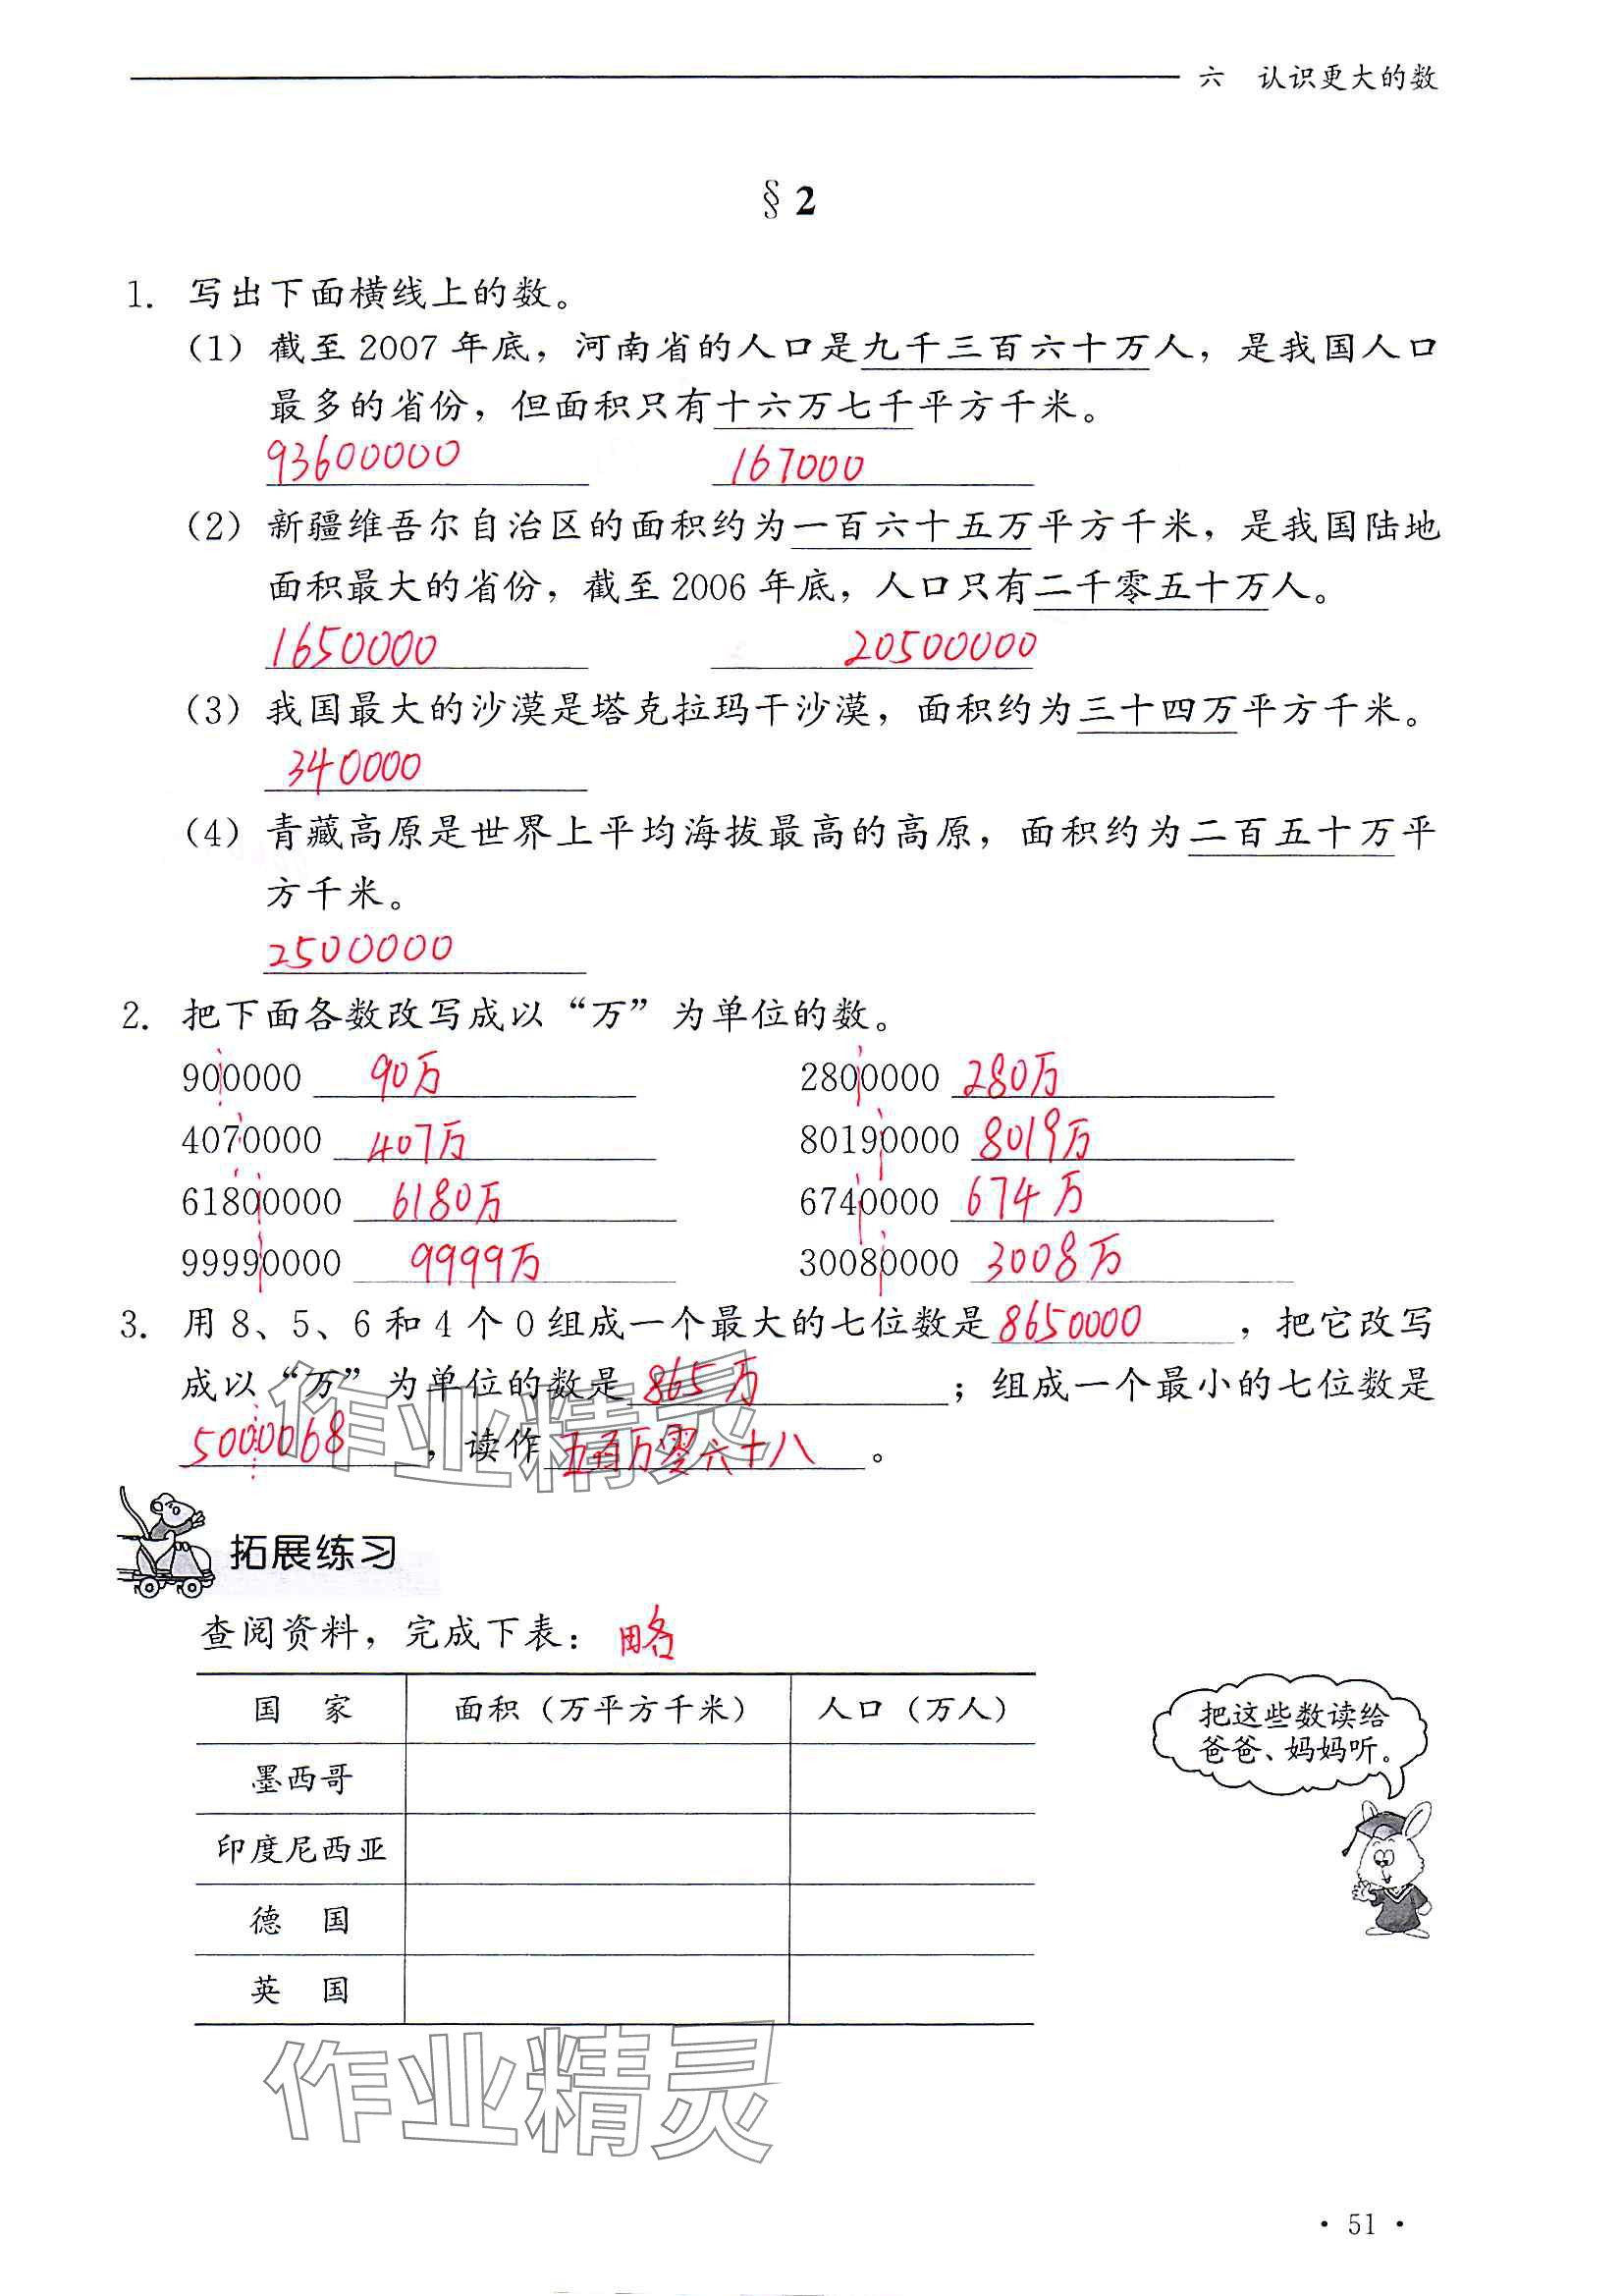 六　认识更大的数
§ 2
1. 写出下面横线上的数。
（1）截至 2007 年底，河南省的人口是九千三百六十万人，是我国人口
最多的省份，但面积只有十六万七千平方千米。
93600000　167000
（2）新疆维吾尔自治区的面积约为一百六十五万平方千米，是我国陆地
面积最大的省份，截至 2006 年底，人口只有二千零五十万人。
1650000　20500000
（3）我国最大的沙漠是塔克拉玛干沙漠，面积约为三十四万平方千米。
340000
（4）青藏高原是世界上平均海拔最高的高原，面积约为二百五十万平
方千米。
2500000
2. 把下面各数改写成以“万”为单位的数。
900000 90万　2800000 280万
4070000 407万　80190000 8019万
61800000 6180万　6740000 674万
99990000 9999万　30080000 3008万
3. 用 8、5、6 和 4 个 0 组成一个最大的七位数是 8650000 ，把它改写
成以“万”为单位的数是 865万 ；组成一个最小的七位数是
5000068 ，读作 五百万零六十八 。
作业精灵
拓展练习
查阅资料，完成下表： 略
国　家　面积（万平方千米）　人口（万人）
墨西哥
印度尼西亚
德　国
英　国
把这些数读给
爸爸、妈妈听。
作业精灵
· 51 ·